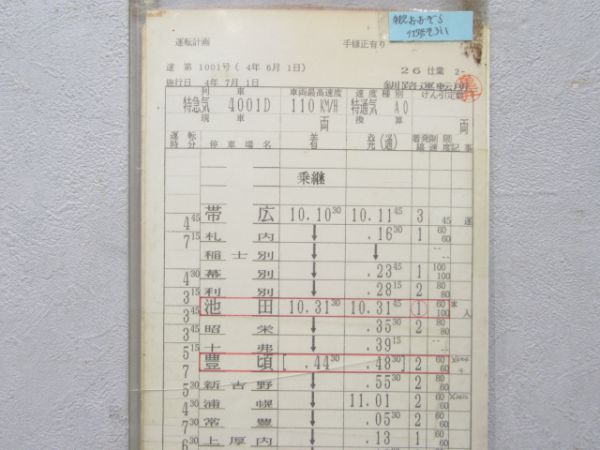 運転計画 手修正有り
達 第 1001号 ( 4年 6月 1日)
施行日 4年 7月 1日 26 仕業 2-
釧路運転所
列車 車両最高速度 速度種別 けん引定数
特急気 4001D 110 KM/H 特通気 A0
現車 両 換算 両
運転時分 停車場名 着 発(通) 着発線 制限速度 記事
乗継
帯広 10.10 30 10.11 45 3 45
4 45
札内 ↓ .16 30 1 60 60
7 15
稲士別 ↓ ↓
幕別 ↓ .23 45 1 100 100
4 30
利別 ↓ .28 15 2 80 80
3 15
池田 10.31 30 10.31 45 1 60 100
3 45
昭栄 ↓ .35 30 2 80 80
3 45
十弗 ↓ .39 15
5 15
豊頃 [ .44 30 .48 30 ] 2 60 60
7
新吉野 ↓ .55 30 2 80 80
5 30
浦幌 ↓ 11.01 2 60 80
4 30
常豊 ↓ .05 30 2 60 80
7 30
上厚内 ↓ .13 1 60 60
6 30